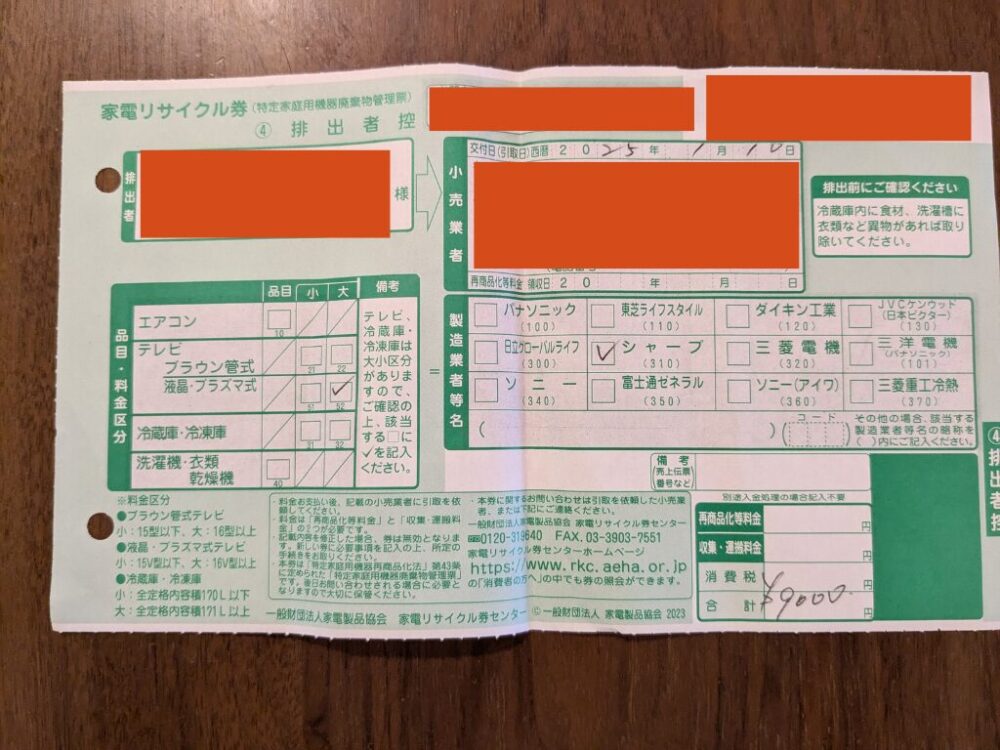 家電リサイクル券(特定家庭用機器廃棄物管理票)
④ 排出者控
排出者
様
小売業者
交付日(引取日)西暦 2025年 1月 10日
再商品化等料金 領収日 20 年 月 日
排出前にご確認ください
冷蔵庫内に食材、洗濯槽に
衣類など異物があれば取り
除いてください。
品目・料金区分
品目 小 大 備考
エアコン
10
テレビ
ブラウン管式
21 22
液晶・プラズマ式 ✓
51 52
冷蔵庫・冷凍庫
31 32
洗濯機・衣類
乾燥機
40
テレビ、
冷蔵庫・
冷凍庫は
大小区分
がありま
すので、
ご確認の
上、該当
する□に
✓を記入
ください。
=
製造業者等名
パナソニック
(100)
東芝ライフスタイル
(110)
ダイキン工業
(120)
JVCケンウッド
(日本ビクター)
(130)
日立グローバルライフ
(300)
✓ シャープ
(310)
三菱電機
(320)
三洋電機
(パナソニック)
(101)
ソニー
(340)
富士通ゼネラル
(350)
ソニー(アイワ)
(360)
三菱重工冷熱
(370)
( ) コード ( )
その他の場合、該当する
製造業者等名の略称を
( )内にご記入ください。
④排出者控
備考
(売上伝票
番号など)
※料金区分
●ブラウン管式テレビ
小:15型以下、大:16型以上
●液晶・プラズマ式テレビ
小:15V型以下、大:16V型以上
●冷蔵庫・冷凍庫
小:全定格内容積170L以下
大:全定格内容積171L以上
・料金お支払い後、記載の小売業者に引取を依
頼してください。
・料金は「再商品化等料金」と「収集・運搬料
金」の2つが必要です。
・記載内容を修正した場合、券は無効となりま
す。新しい券に必要事項を記入の上、所定の
手続きをお取りください。
・本券は「特定家庭用機器再商品化法」第43条
に定められた「特定家庭用機器廃棄物管理票」
です。後日お問い合わせされる場合に必要と
なりますので大切に保管ください。
・本券に関するお問い合わせは引取を依頼した小売業
者、または下記にご連絡ください。
一般財団法人家電製品協会 家電リサイクル券センター
0120-319640 FAX.03-3903-7551
家電リサイクル券センターホームページ
https://www.rkc.aeha.or.jp
の「消費者の方へ」の中でも券の照会ができます。
別途入金処理の場合記入不要
再商品化等料金 円
収集・運搬料金 円
消費税 円
合計 ¥9000 円
一般財団法人家電製品協会 家電リサイクル券センター ©一般財団法人 家電製品協会 2023